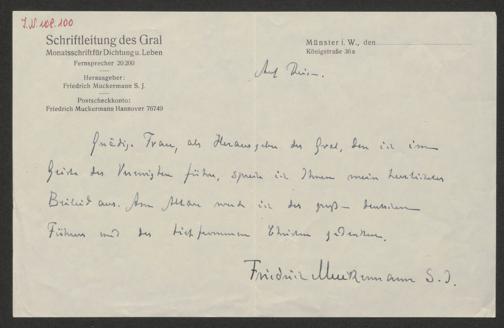 I.N. 108.100
Schriftleitung des Gral
Monatsschrift für Dichtung u. Leben
Fernsprecher 20200
Herausgeber:
Friedrich Muckermann S. J.
Postscheckkonto:
Friedrich Muckermann Hannover 76749
Münster i. W., den
Königstraße 36a
Auf Reisen.
Gnädige Frau, als Herausgeber des Gral, den ich im
Geiste des Verewigten führe, spreche ich Ihnen mein herzlichstes
Beileid aus. Am Altare werde ich des großen deutschen
Führers und des tieffrommen Christen gedenken.
Friedrich Muckermann S. J.